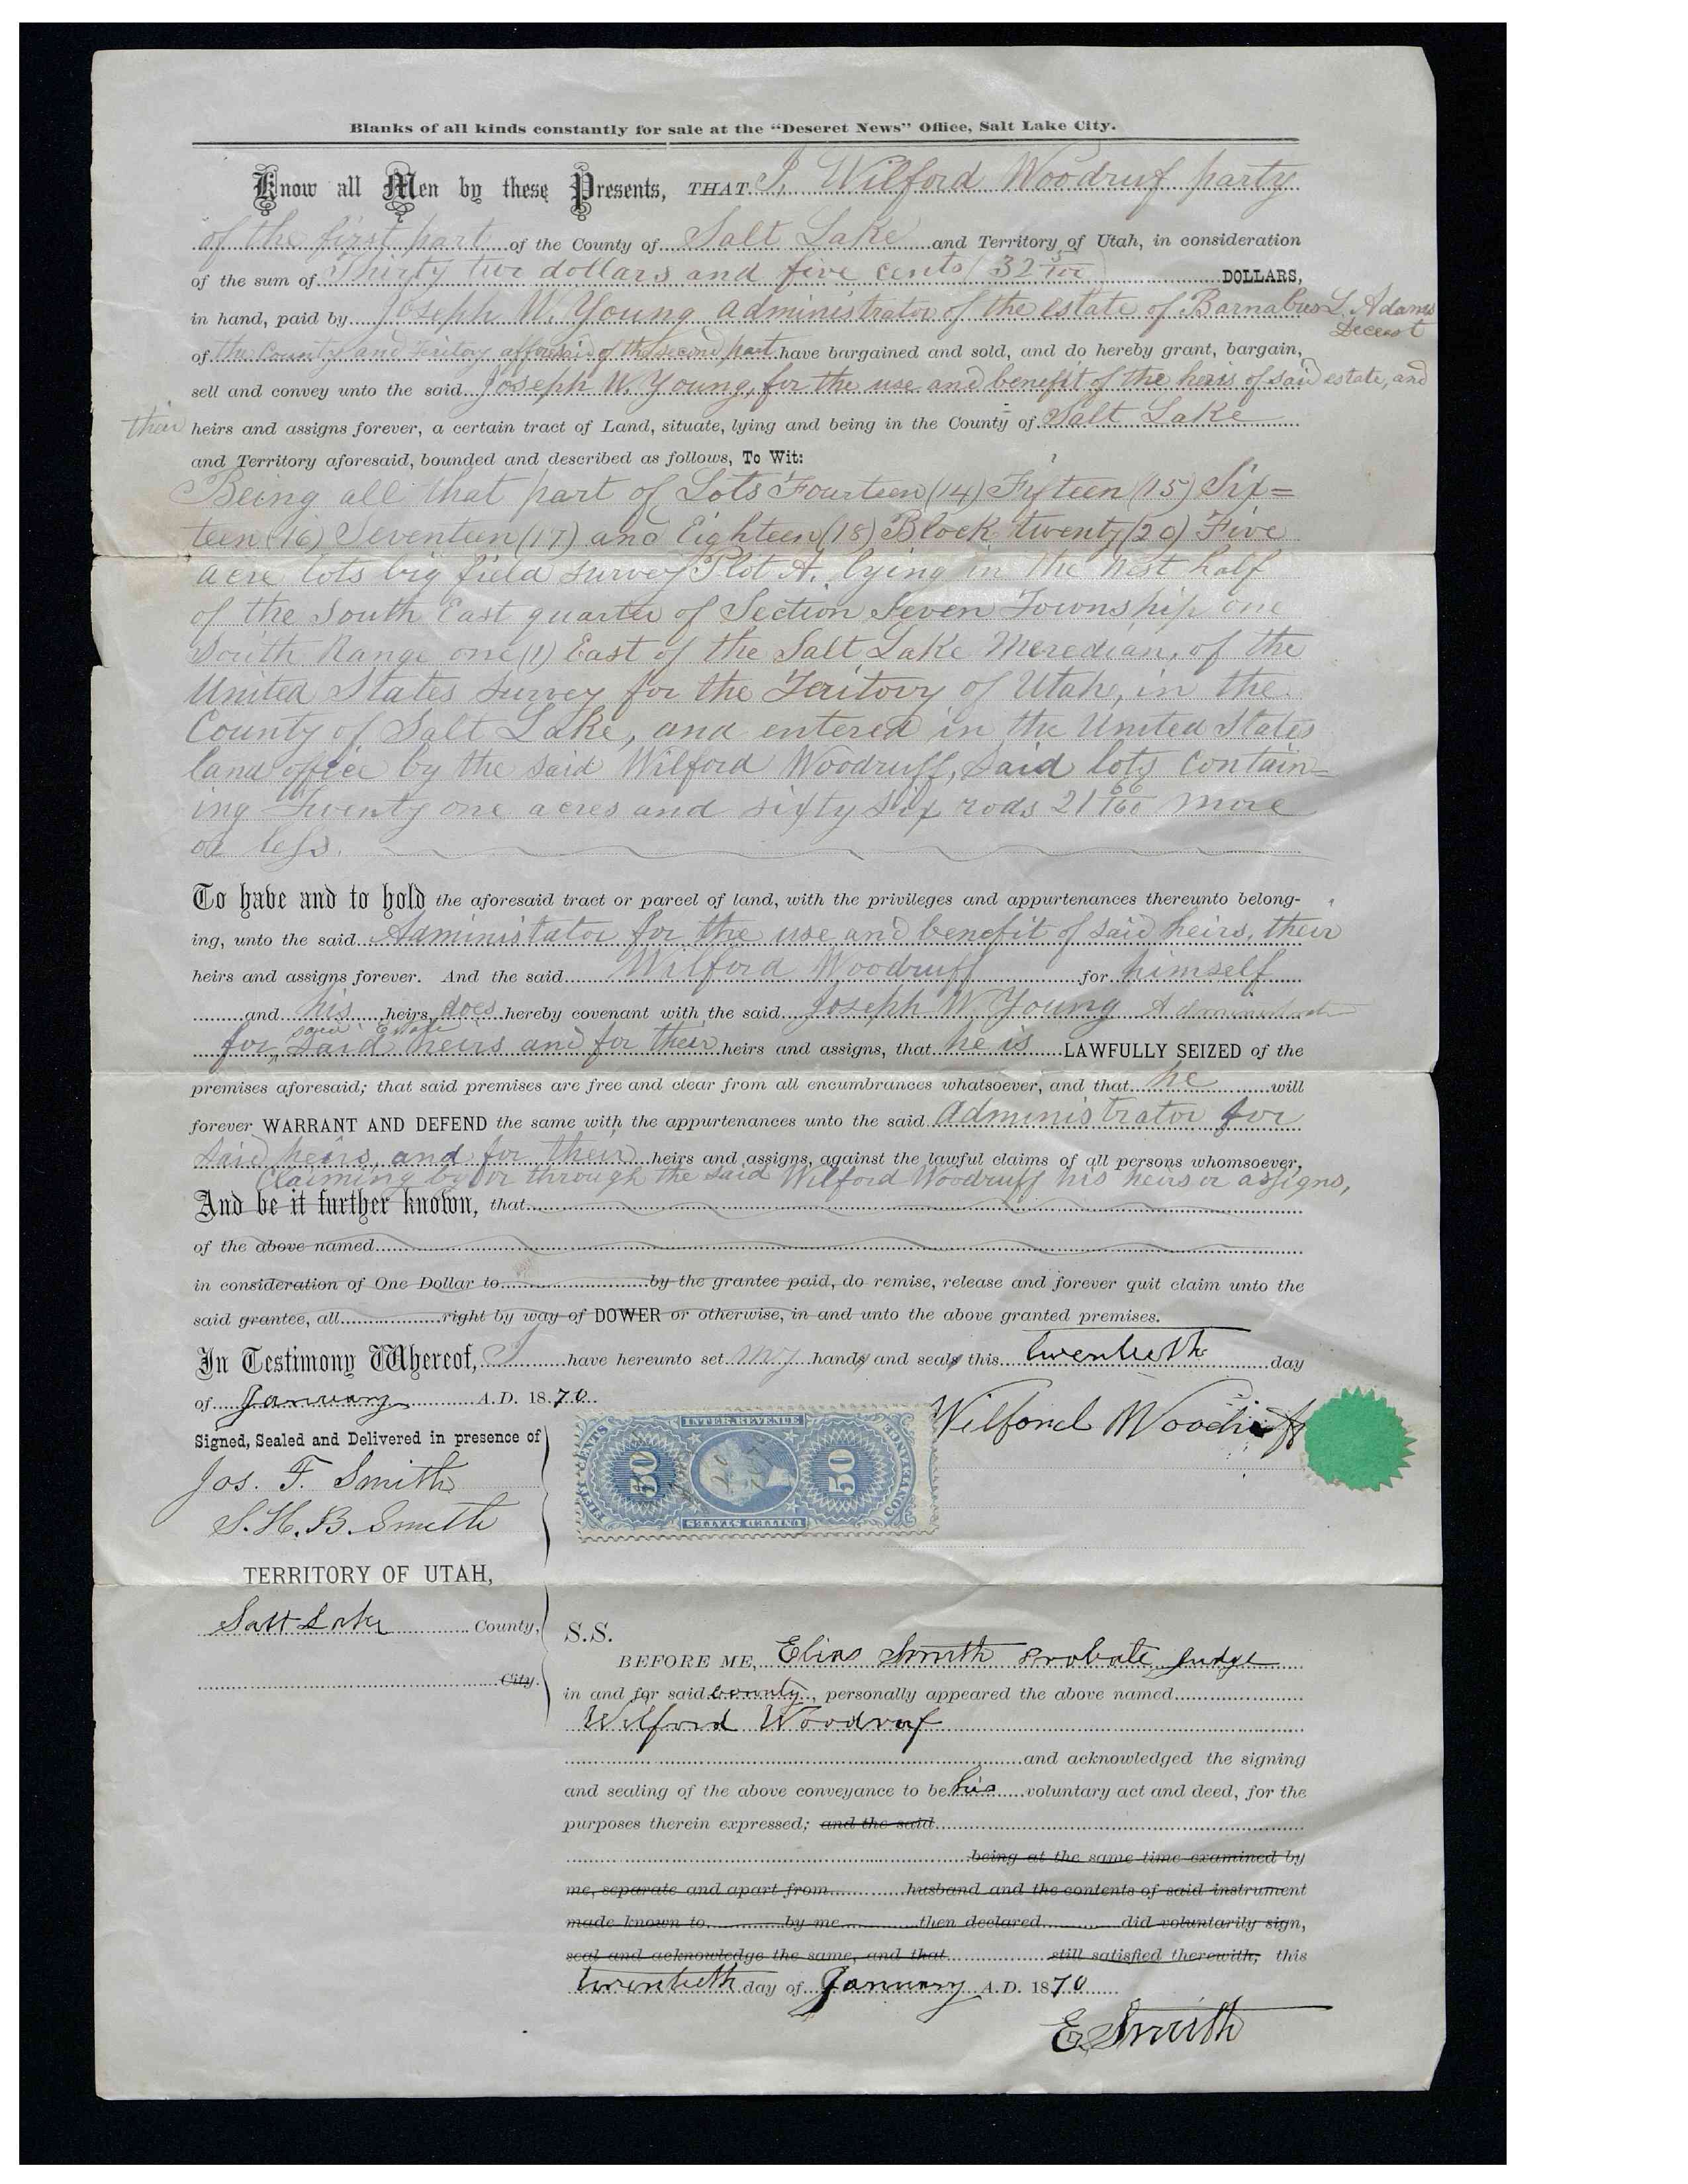 Blanks of all kinds constantly for sale at the "Deseret News" Office, Salt Lake City.
Know all Men by these Presents, THAT I, Wilford Woodruf party
of the first part of the County of Salt Lake and Territory of Utah, in consideration
of the sum of Thirty two dollars and five cents (32 5/100) DOLLARS,
in hand, paid by Joseph W. Young administrator of the estate of Barnabus L. Adams
Deceast
of the County and Teritory afforsaid of the second part have bargained and sold, and do hereby grant, bargain,
sell and convey unto the said Joseph W. Young, for the use and benefit of the heirs of said estate, and
their heirs and assigns forever, a certain tract of Land, situate, lying and being in the County of Salt Lake
and Territory aforesaid, bounded and described as follows, To Wit:
Being all that part of Lots Fourteen (14) Fifteen (15) Six=
teen (16) Seventeen (17) and Eighteen (18) Block twenty (20) Five
acre lots big field survey Plot A. lying in the West half
of the South East quarter of Section Seven Township one
South Range one (1) East of the Salt Lake Meredian, of the
United States survey for the Teritory of Utah, in the
County of Salt Lake, and entered in the United States
land office by the said Wilford Woodruff, said lots contain=
ing Twenty one acres and sixty six rods 21 66/160 more
or less.
To have and to hold the aforesaid tract or parcel of land, with the privileges and appurtenances thereunto belong-
ing, unto the said Administator for the use and benefit of said heirs, their
heirs and assigns forever. And the said Wilford Woodruff for himself
and his heirs, does hereby covenant with the said Joseph W. Young Administrator
said Estate
for said heirs and for their heirs and assigns, that he is LAWFULLY SEIZED of the
premises aforesaid; that said premises are free and clear from all encumbrances whatsoever, and that he will
forever WARRANT AND DEFEND the same with the appurtenances unto the said Administrator for
said heirs, and for their heirs and assigns, against the lawful claims of all persons whomsoever,
Claiming by or through the said Wilford Woodruff his heirs or assigns,
And be it further known, that
of the above named
in consideration of One Dollar to by the grantee paid, do remise, release and forever quit claim unto the
said grantee, all right by way of DOWER or otherwise, in and unto the above granted premises.
In Testimony Whereof, I have hereunto set my hands and seals this twentieth day
of January A.D. 1870.
Signed, Sealed and Delivered in presence of
Jos. F. Smith
S. H. B. Smith
INTER. REVENUE
FIFTY CENTS
50
50
CONVEYANCE
UNITED STATES
Wilford Woodruff
TERRITORY OF UTAH,
Salt Lake County,
City.
S.S.
BEFORE ME, Elias Smith Probate Judge
in and for said county, personally appeared the above named
Wilford Woodruf
and acknowledged the signing
and sealing of the above conveyance to be his voluntary act and deed, for the
purposes therein expressed; and the said
being at the same time examined by
me, separate and apart from husband and the contents of said instrument
made known to by me then declared did voluntarily sign,
seal and acknowledge the same, and that still satisfied therewith; this
twentieth day of January A.D. 1870
E. Smith